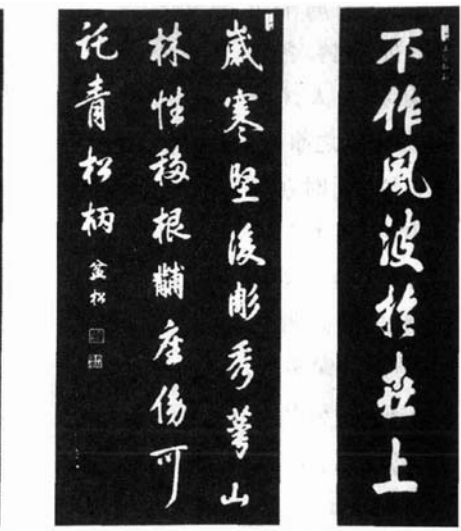 不作風波於世上
歲寒堅後彫秀萼山
林性移根黼座傍可
託青松柄 盆松